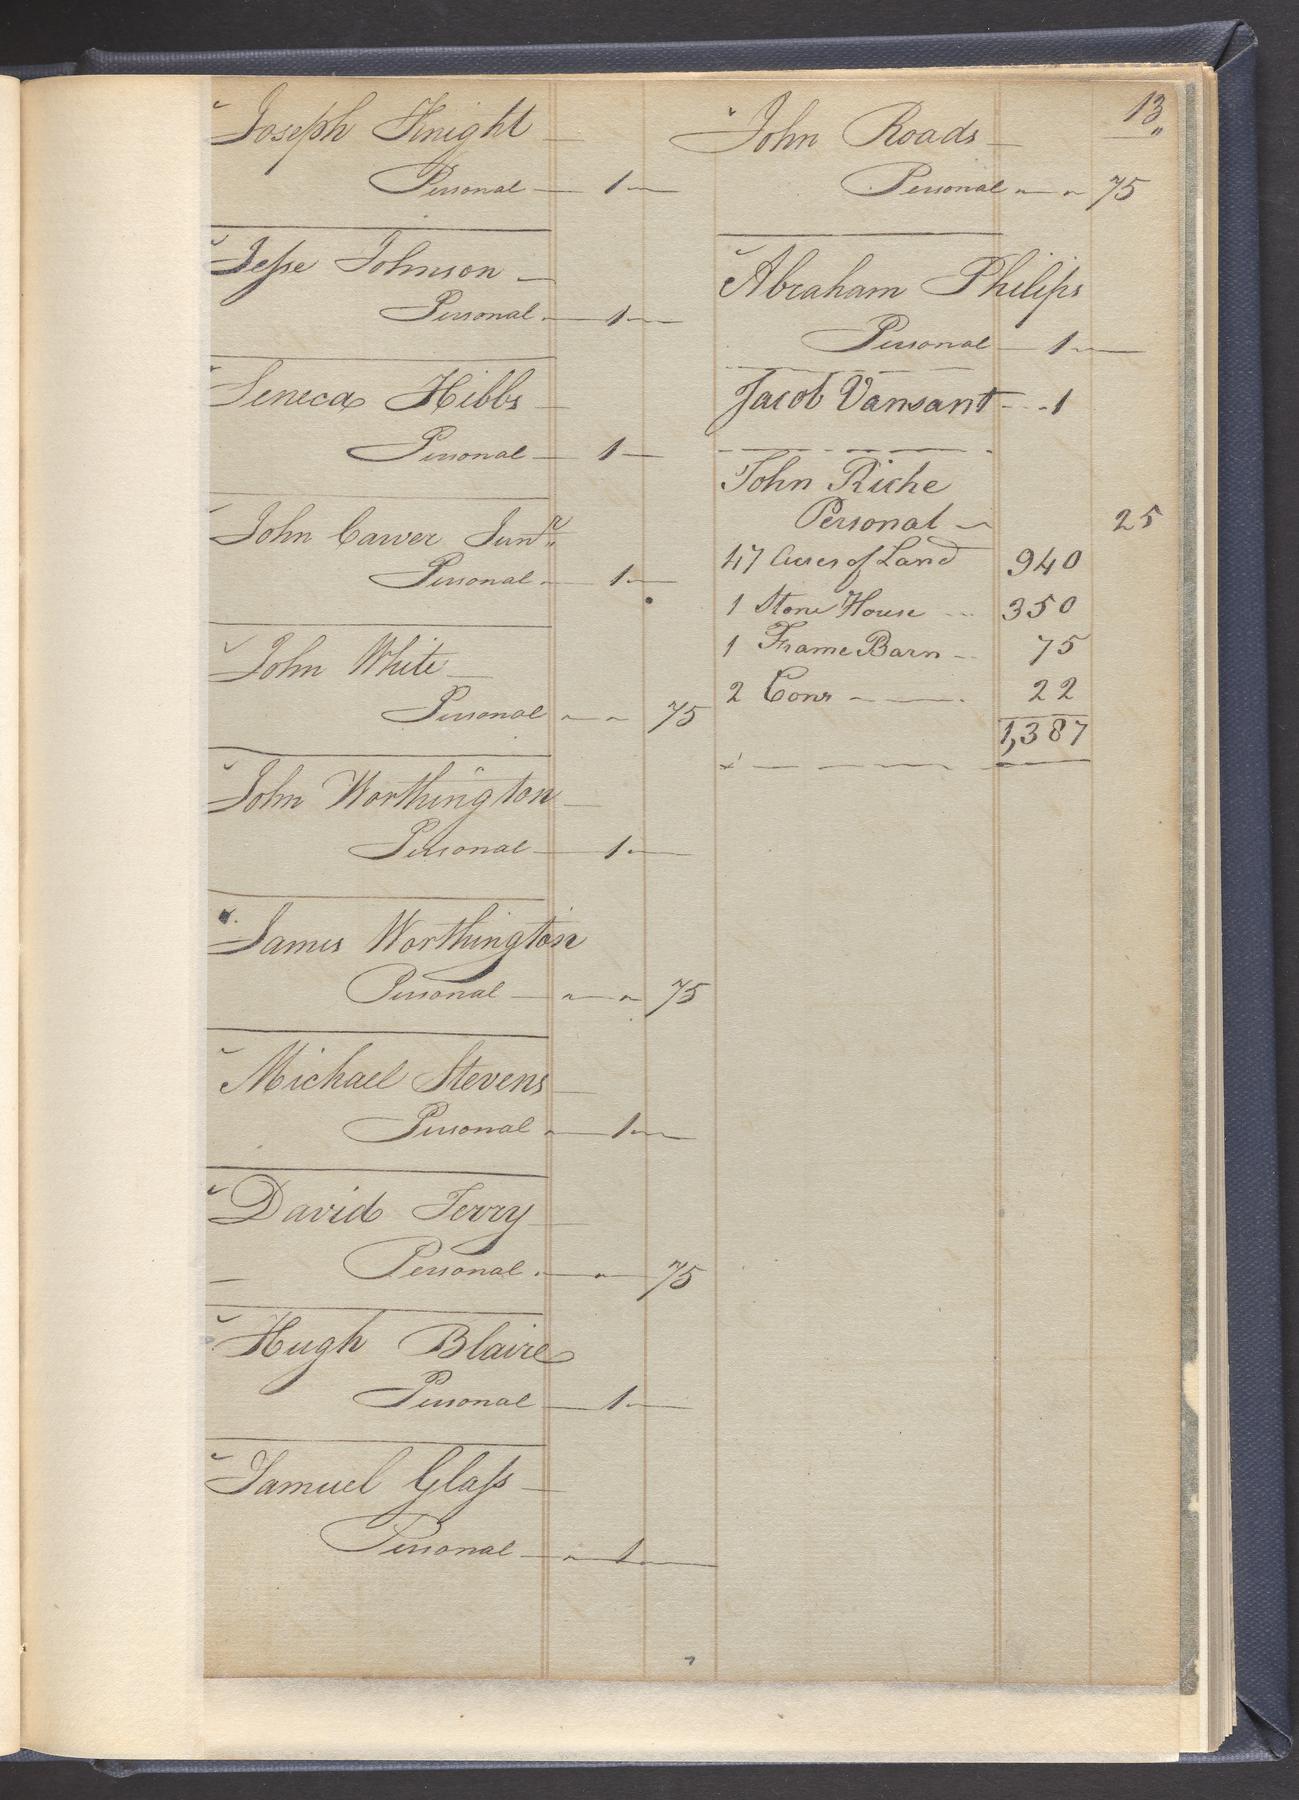 13
Joseph Knight
Personal — 1 —
Jesse Johnson —
Personal — 1 —
Seneca Hibbs —
Personal — 1 —
John Carver Junr
Personal — 1 —
John White —
Personal — " — " 75
John Worthington —
Personal — 1 —
James Worthington
Personal — " — " 75
Michael Stevens —
Personal — 1 —
David Terry —
Personal — " — 75
Hugh Blaire
Personal — 1 —
Samuel Glass —
Personal — " 1 —
John Roads —
Personal " — " 75
Abraham Philips
Personal — 1 —
Jacob Vansant - - - 1
John Riche
Personal — 25
47 Acres of Land 940
1 Stone House - - 350
1 Frame Barn - - 75
2 Cows - — . 22
1,387